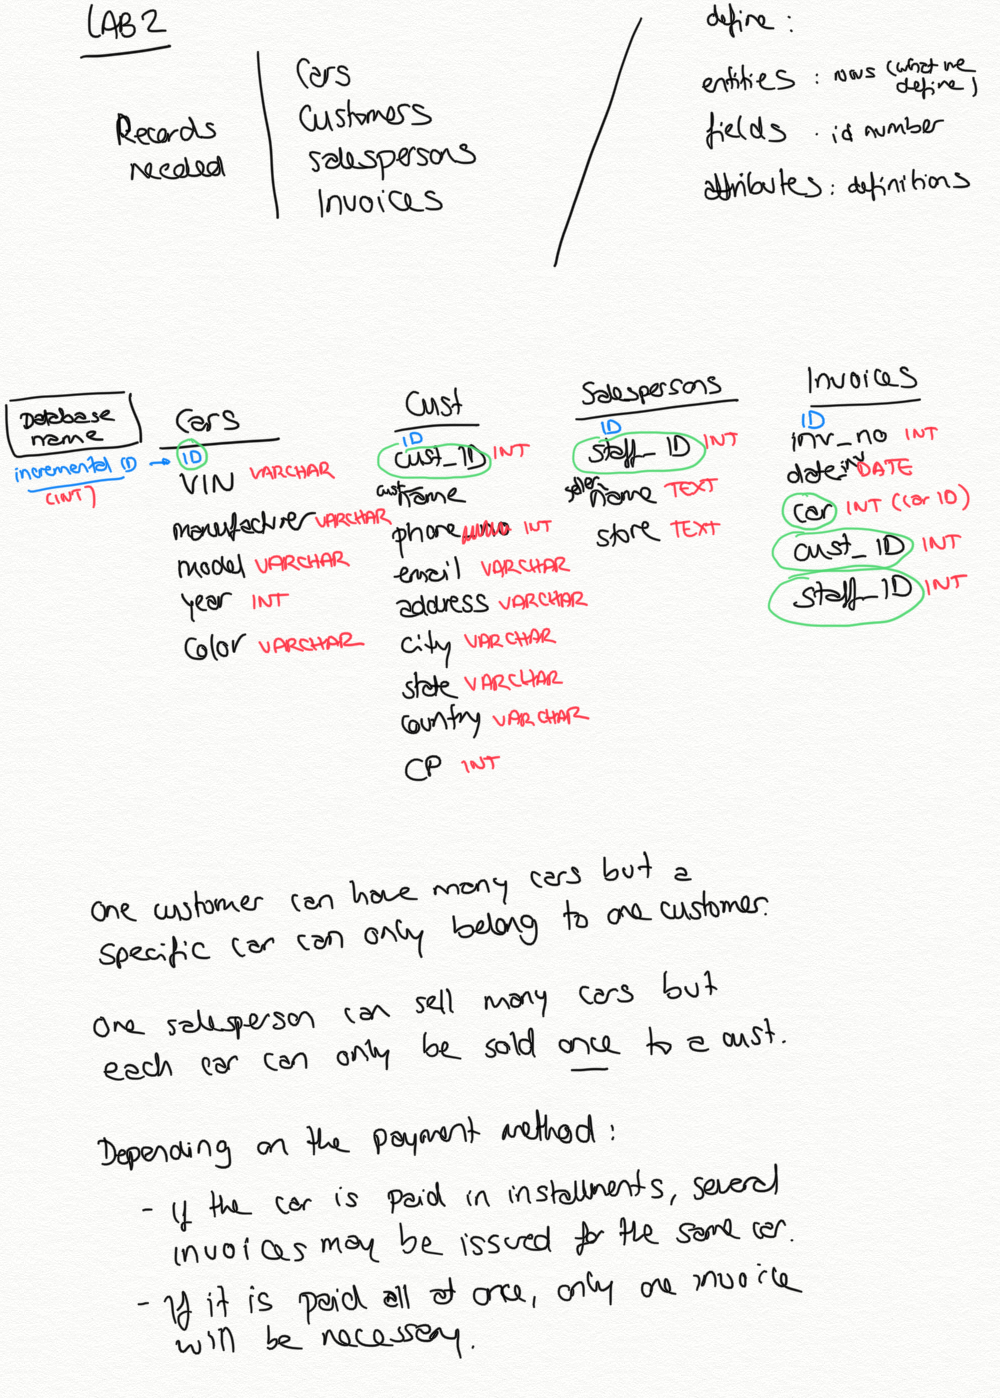 LAB 2
Records
needed
Cars
Customers
salespersons
Invoices
define :
entities : nows (what we
define)
fields : id number
attributes : definitions
Database
name
incremental ID →
(INT)
Cars
ID
VIN VARCHAR
manufacturer VARCHAR
model VARCHAR
year INT
Color VARCHAR
Cust
ID
cust_ID INT
cust name
phone no INT
email VARCHAR
address VARCHAR
city VARCHAR
state VARCHAR
country VARCHAR
CP INT
Salespersons
ID
staff_ID INT
name TEXT
store TEXT
Invoices
ID
inv_no INT
date inv DATE
car INT (car ID)
cust_ID INT
staff_ID INT
One customer can have many cars but a
specific car can only belong to one customer.
One salesperson can sell many cars but
each car can only be sold once to a cust.
Depending on the payment method :
- If the car is paid in installments, several
invoices may be issued for the same car.
- If it is paid all at once, only one invoice
will be necessary.